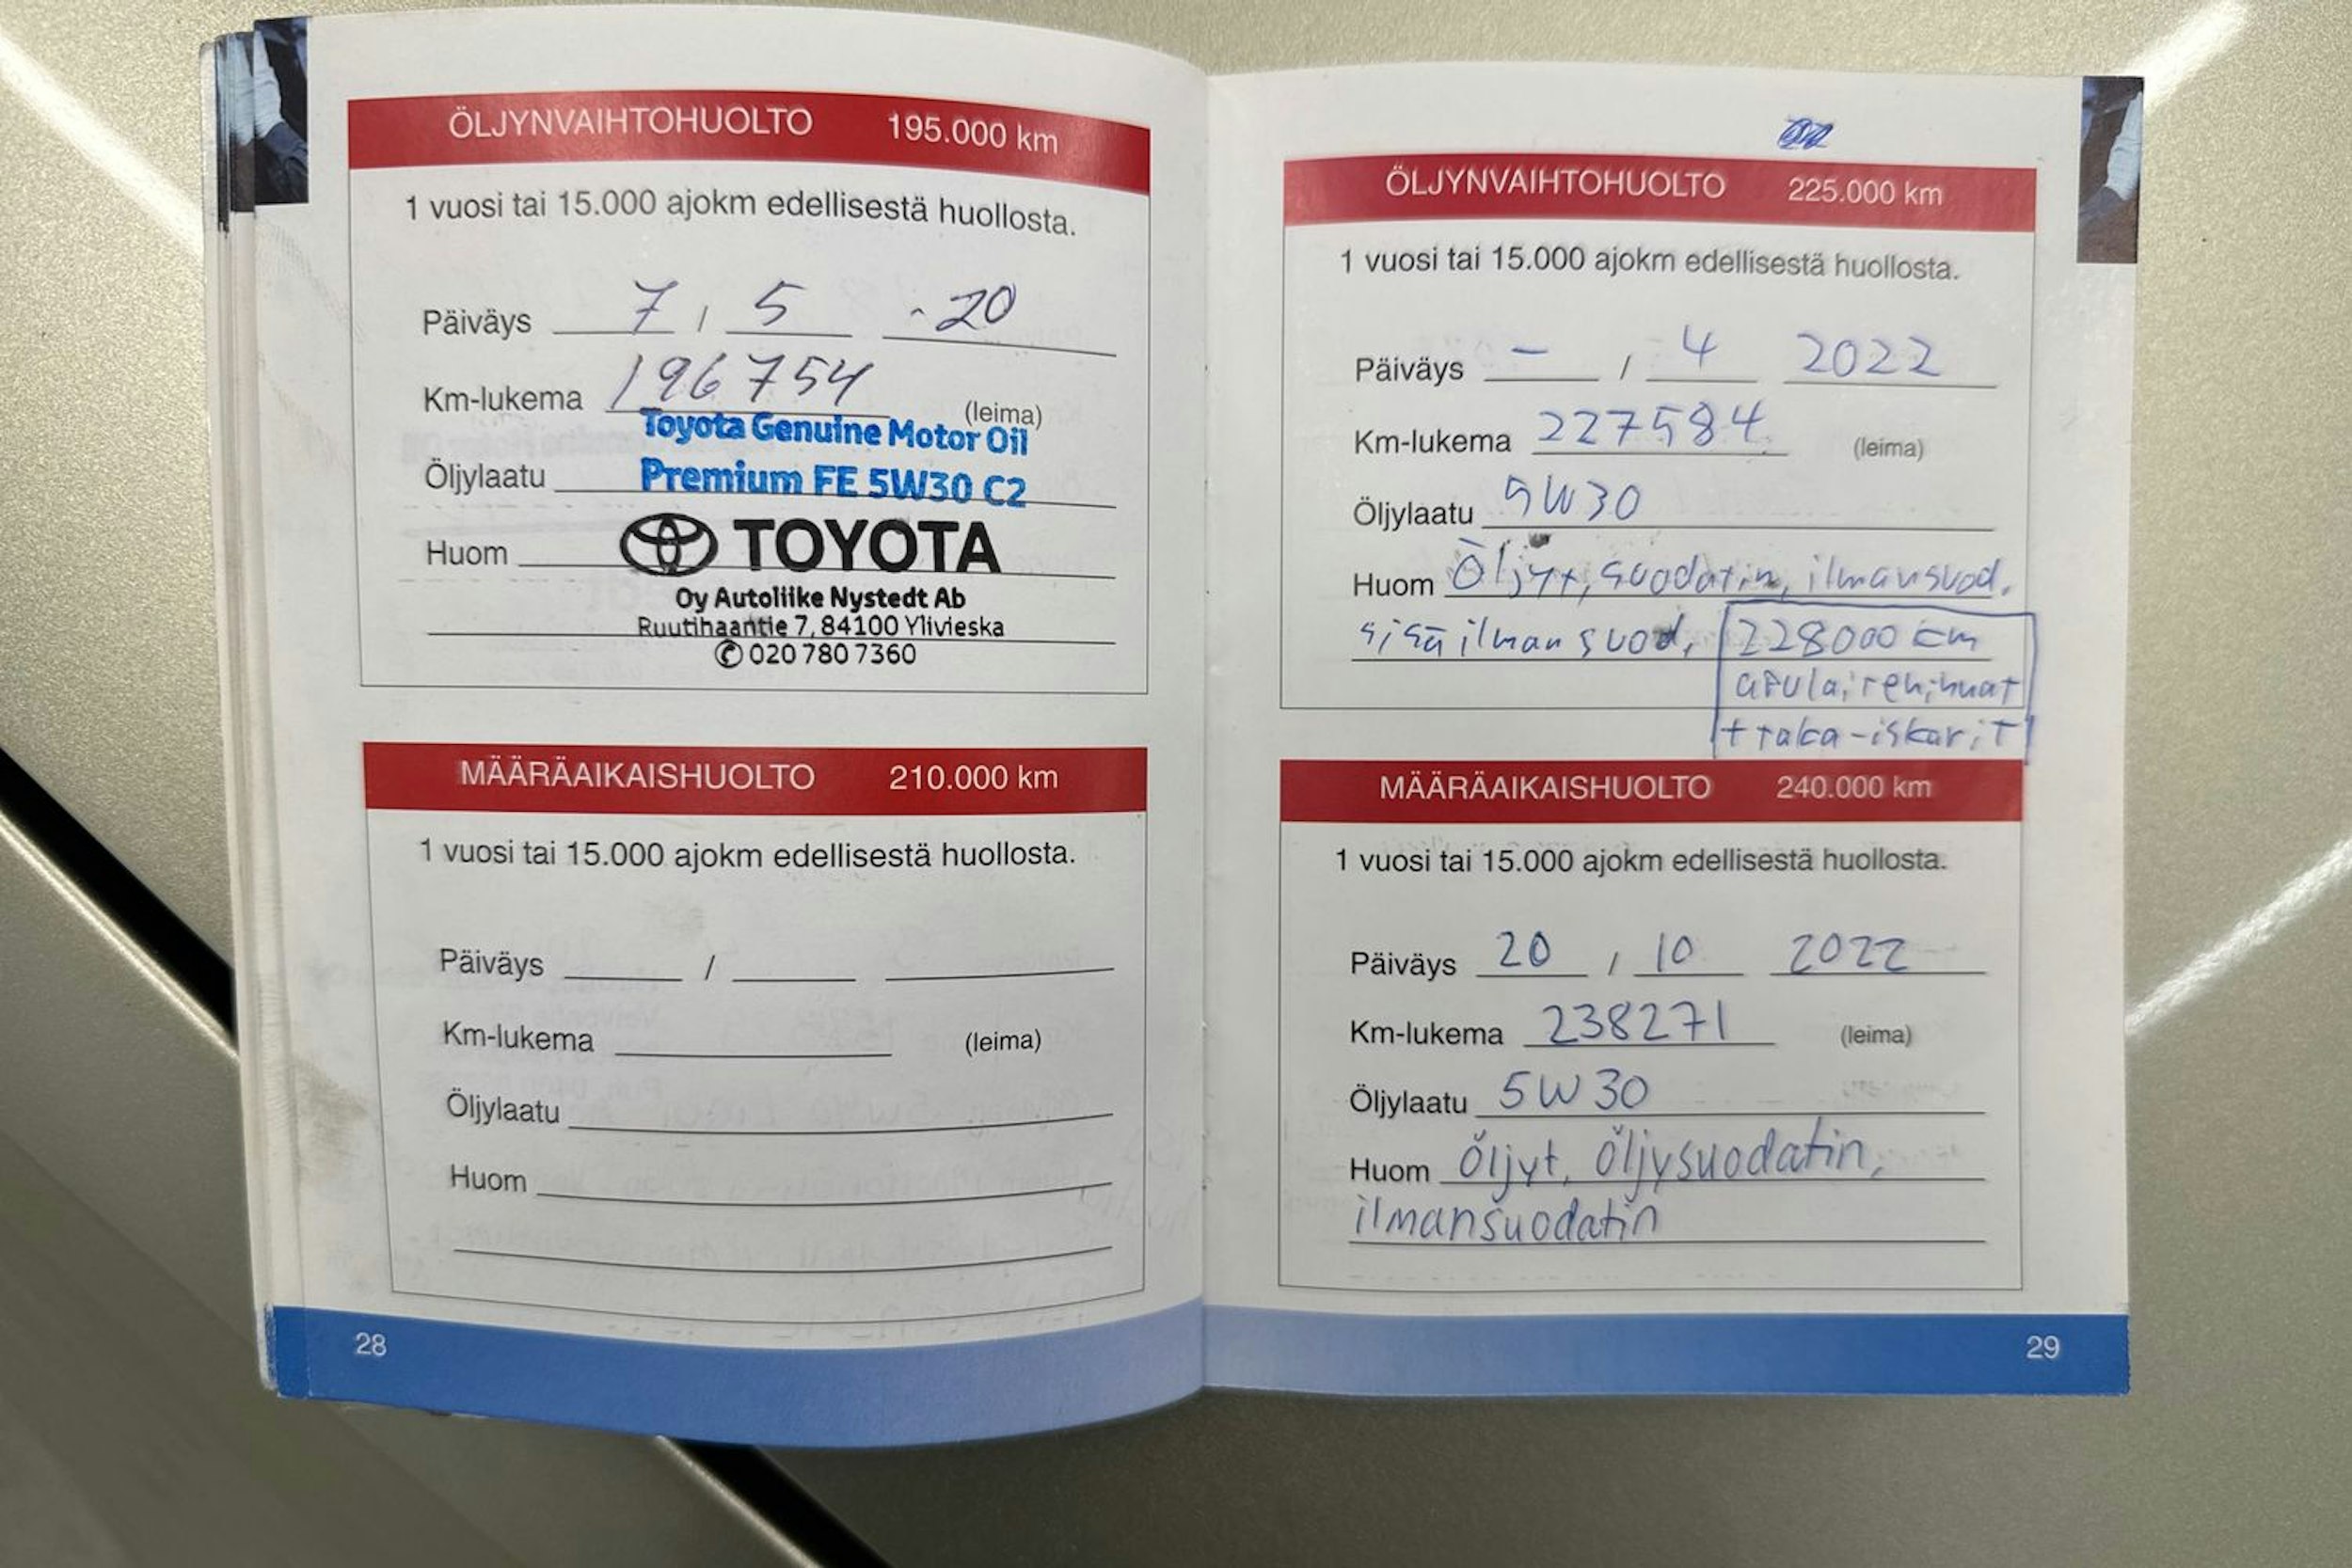 ÖLJYNVAIHTOHUOLTO 195.000 km
1 vuosi tai 15.000 ajokm edellisestä huollosta.
Päiväys 7 / 5 -20
Km-lukema 196754 (leima)
Toyota Genuine Motor Oil
Öljylaatu Premium FE 5W30 C2
Huom TOYOTA
Oy Autoliike Nystedt Ab
Ruutihaantie 7, 84100 Ylivieska
✆ 020 780 7360
MÄÄRÄAIKAISHUOLTO 210.000 km
1 vuosi tai 15.000 ajokm edellisestä huollosta.
Päiväys /
Km-lukema (leima)
Öljylaatu
Huom
28
ÖLJYNVAIHTOHUOLTO 225.000 km
1 vuosi tai 15.000 ajokm edellisestä huollosta.
Päiväys - / 4 2022
Km-lukema 227584 (leima)
Öljylaatu 5W30
Huom Öljyt, suodatin, ilmansuod.
sisäilmansuod, 228000 km
apulaitehihnat
+ taka-iskarit
MÄÄRÄAIKAISHUOLTO 240.000 km
1 vuosi tai 15.000 ajokm edellisestä huollosta.
Päiväys 20 / 10 2022
Km-lukema 238271 (leima)
Öljylaatu 5W30
Huom öljyt, öljysuodatin,
ilmansuodatin
29